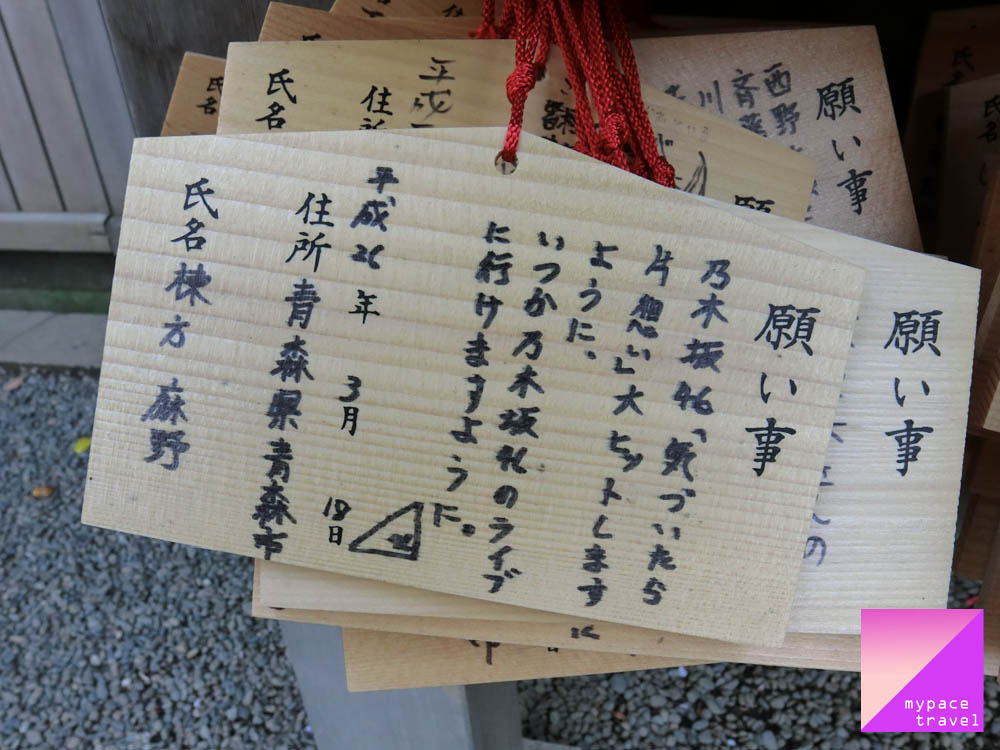 願い事
乃木坂46「気づいたら
片想い」大ヒットします
ように。
いつか乃木坂46のライブ
に行けますように。
平成26年3月18日
住所 青森県青森市
氏名 棟方 麻野
願い事
の
願い事
西野
川
願
平成
住所
氏名
氏名
mypace
travel